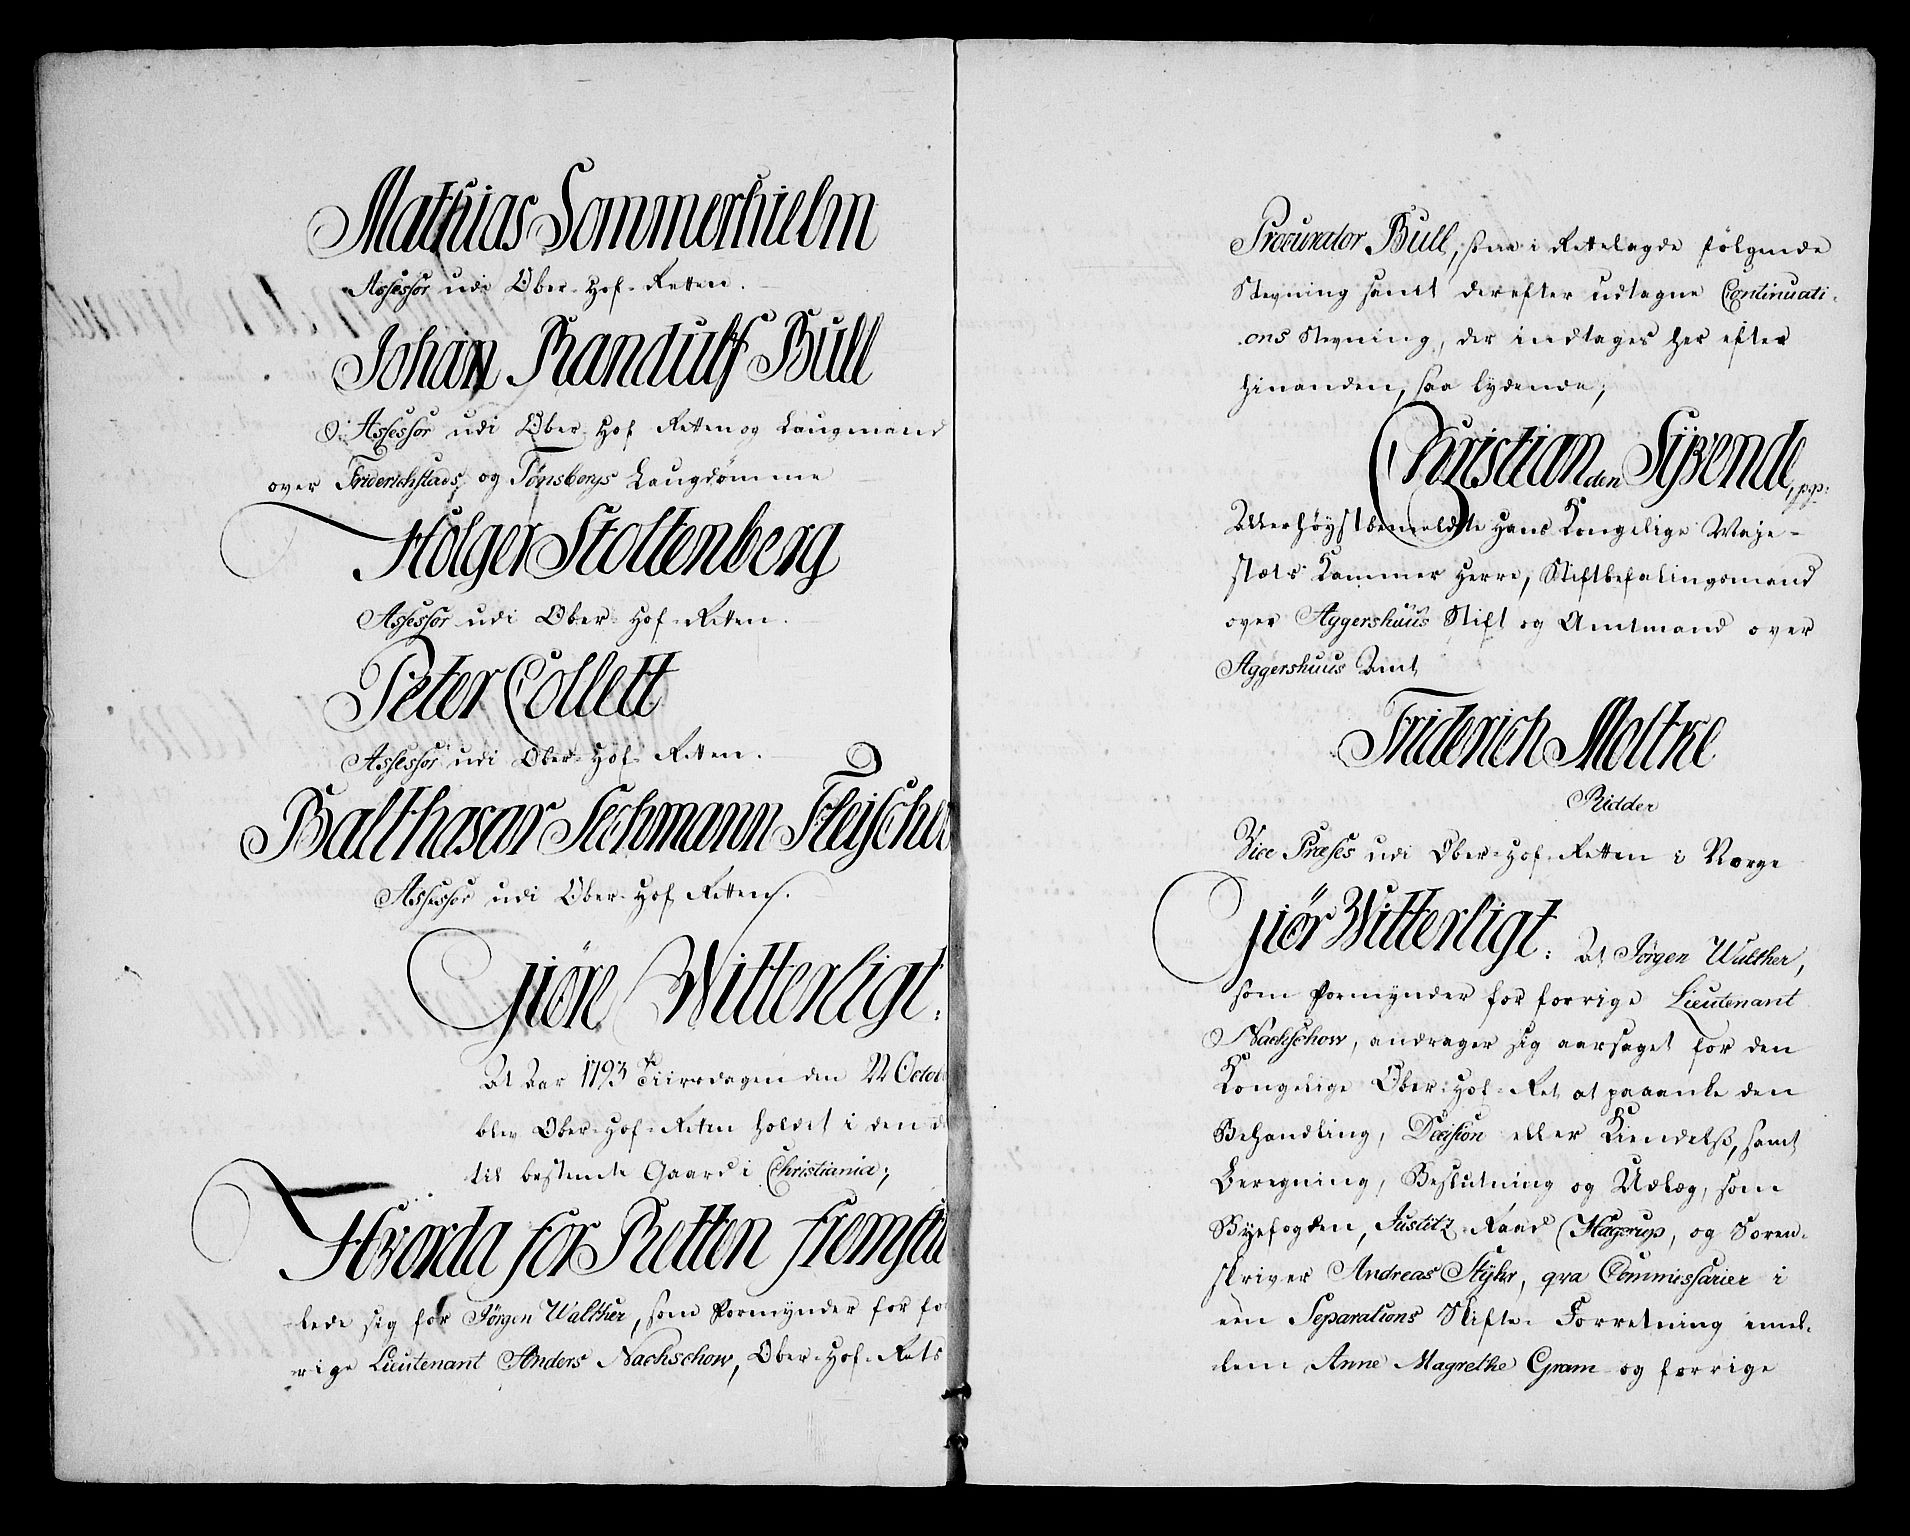 Mathias Sommerhielm
Assessor udi Ober-Hof-Retten.
Johan Randulf Bull
Assessor udi Ober-Hof Retten og Laugmand
over Friderichstads og Tønsbergs Laugdømme
Holger Stoltenberg
Assessor udi Ober-Hof-Retten.
Peter Collett
Assessor udi Ober-Hof-Retten.
Balthasar Sechmann Fleischer
Assessor udi Ober-Hof Retten.
Giöre Witterligt:
At Aar 1793 Tiirsdagen den 22 Octob
blev Ober-Hof-Retten holdet i den d
til bestemte Gaard i Christiania;
Hvorda for Retten fremstil
lede sig for Jørgen Walther, som Formynder for for
rige Lieutenant Anders Nachschow, Ober-Hof-Rets
Procurator Bull, som i Rettelagde følgende
Stevning samt derefter udtagne Continuati-
ons Stevning, der indtages her efter
hinanden, saa lydende;
Christian den Syvende, pp:
Allerhöystbemeldte Hans Kongelige Maje-
stæts Kammer Herre, Stiftbefalingsmand
over Aggershuus Stift og Amtmand over
Aggershuus Amt
Friderich Moltke
Ridder
Vice Præses udi Ober-Hof-Retten i Norge
Giör Witterligt: At Jørgen Walther,
som Formynder for forrige Lieutenant
Nachschow, andrager sig aarsaget for den
Kongelige Ober-Hof-Ret at paaanke den
Behandling, Decision eller Kiendelse, samt
Beregning, Beslutning og Udlæg, som
Byefogden, Justitz-Raad Hagerup, og Soren-
skriver Andreas Styhr, qva Commissarier i
een Separations Skifte-Forretning imel-
lem Anne Magrethe Gram og forrige